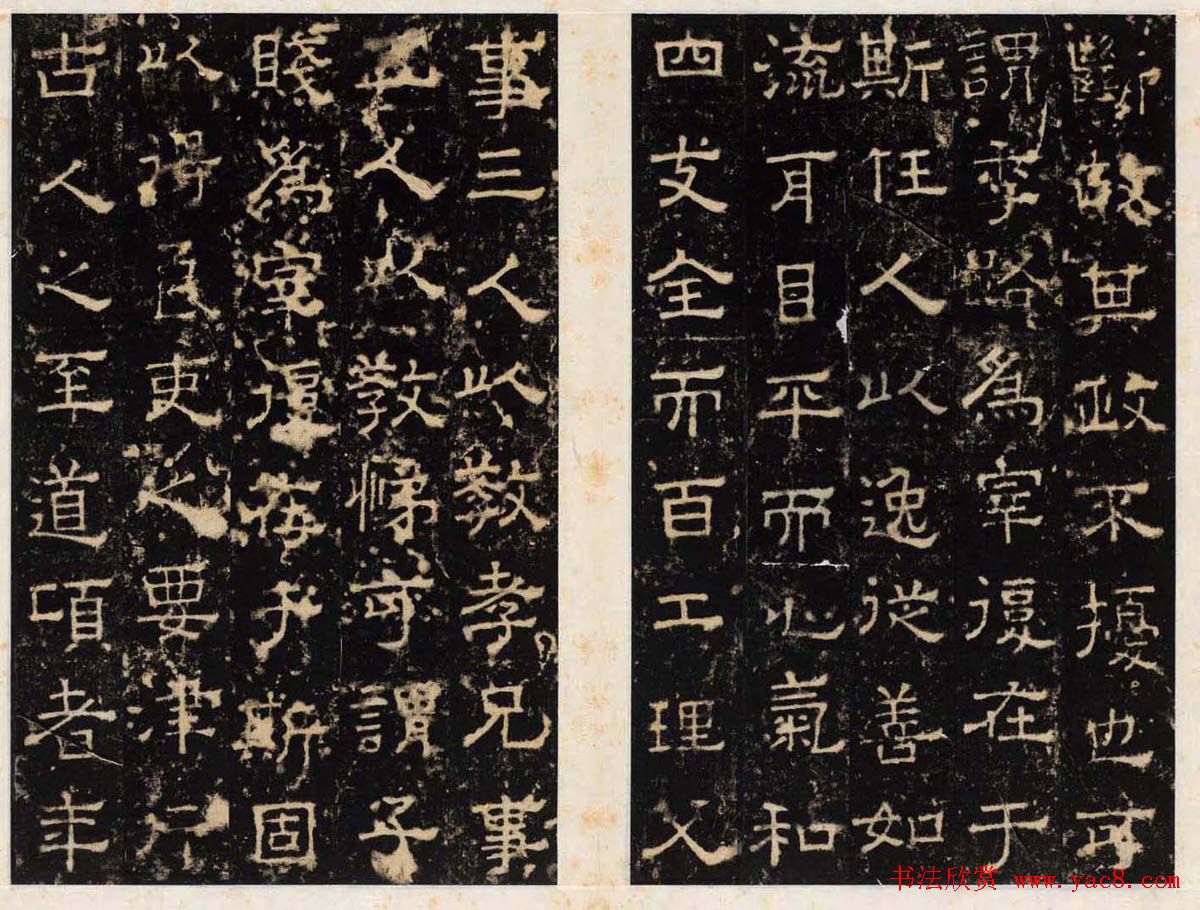 故其政不擾也可
謂季路為宰復在于
斯任人以逸從善如
流耳目平而心氣和
四支全而百工理父
事三人以教孝兄事
五人以教悌可謂子
賤為宰復在於斯固
以得民吏之要津行
古人之至道項者年
书法欣赏 www.yac8.com